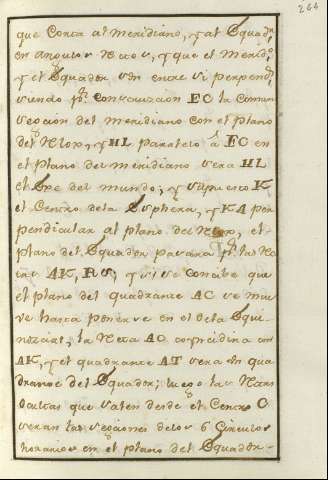 264
que Corta al meridiano, y al Equadr.
en angulos Rectos, y que el merido.
y el Equador son entre si perpend.
siendo pr. construccion EC la comun
seccion del meridiano con el plano
del Relox, y HL paralelo á EC en
el plano del meridiano sera HL
el Exe del mundo; y supuesto K
el Centro dela Esphera, y KA per
pendicular al plano del Relox, el
plano del Equador pasara pr. las Re
ctas AK, RS; y si se concibe que
el plano del quadrante AC se mue
ve hasta ponerse en el dela Equi-
noccial, la Recta AO coincidira con
AK, y el quadrante AT sera en qua
drante del Equador; luego las Rectas
ocultas que salen desde el Centro O
seran las secciones delos 6 Circulos
horarios en el plano del Equador-